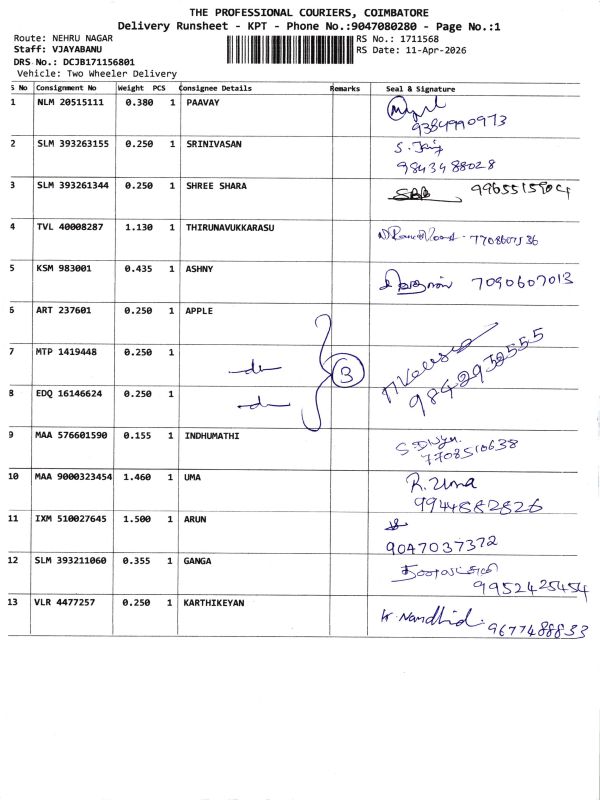 THE PROFESSIONAL COURIERS, COIMBATORE
Delivery Runsheet - KPT - Phone No.:9047080280 - Page No.:1
Route: NEHRU NAGAR RS No.: 1711568
Staff: VJAYABANU RS Date: 11-Apr-2026
DRS No.: DCJB171156801
Vehicle: Two Wheeler Delivery
S No Consignment No Weight PCS Consignee Details Remarks Seal & Signature
1 NLM 20515111 0.380 1 PAAVAY
9384990973
2 SLM 393263155 0.250 1 SRINIVASAN
9843488028
3 SLM 393261344 0.250 1 SHREE SHARA
4 TVL 40008287 1.130 1 THIRUNAVUKKARASU
5 KSM 983001 0.435 1 ASHNY 7090607013
6 ART 237601 0.250 1 APPLE
7 MTP 1419448 0.250 1 3
8 EDQ 16146624 0.250 1
9842932555
9 MAA 576601590 0.155 1 INDHUMATHI
7708510638
10 MAA 9000323454 1.460 1 UMA R. Uma
9944882826
11 IXM 510027645 1.500 1 ARUN
9047037372
12 SLM 393211060 0.355 1 GANGA
9952425454
13 VLR 4477257 0.250 1 KARTHIKEYAN
9677488833